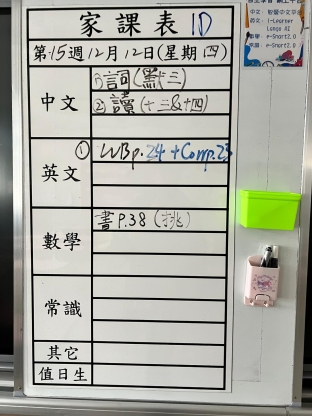 家課表 1D
第15週12月12日(星期四)
中文
①詞(默十三)
②讀(十三&十四)
英文
① WB p.24 + Comp.23
數學
書 P.38 (挑)
常識
其它
值日生
中文:
英文: i-Learner
e-Smart2.0
e-Smart2.0